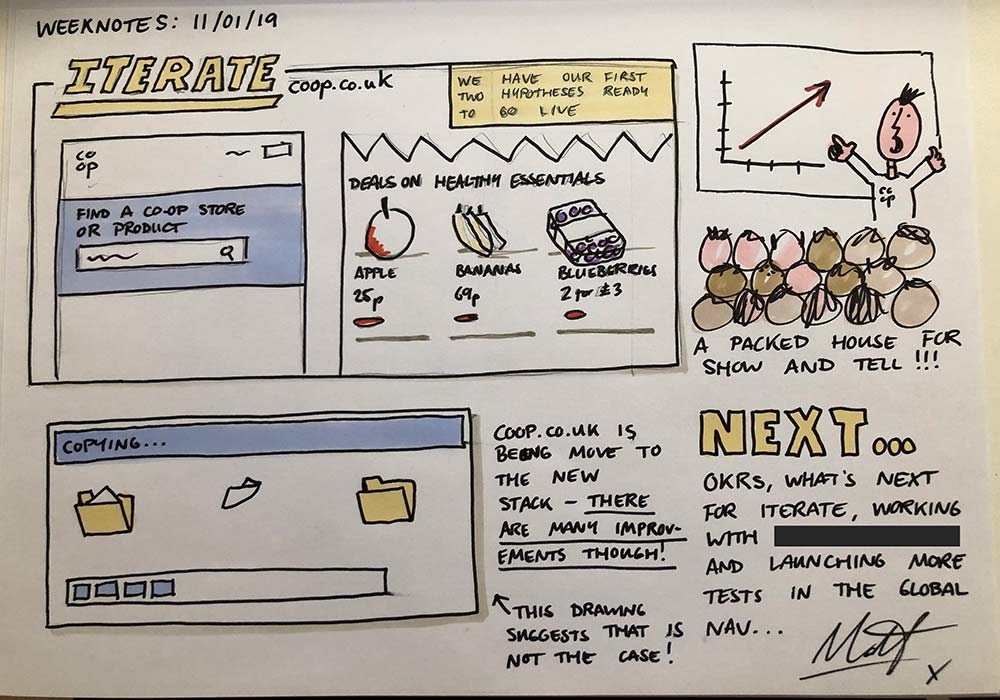 WEEKNOTES: 11/01/19
ITERATE
coop.co.uk
WE HAVE OUR FIRST
TWO HYPOTHESES READY
TO GO LIVE
co
op
FIND A CO-OP STORE
OR PRODUCT
DEALS ON HEALTHY ESSENTIALS
APPLE
25p
BANANAS
69p
BLUEBERRIES
2 for £3
co
op
A PACKED HOUSE FOR
SHOW AND TELL!!!
COPYING...
COOP.CO.UK IS
BEING MOVE TO
THE NEW
STACK – THERE
ARE MANY IMPROV-
EMENTS THOUGH!
THIS DRAWING
SUGGESTS THAT IS
NOT THE CASE!
NEXT...
OKRS, WHAT'S NEXT
FOR ITERATE, WORKING
WITH
AND LAUNCHING MORE
TESTS IN THE GLOBAL
NAV...
Matt
x